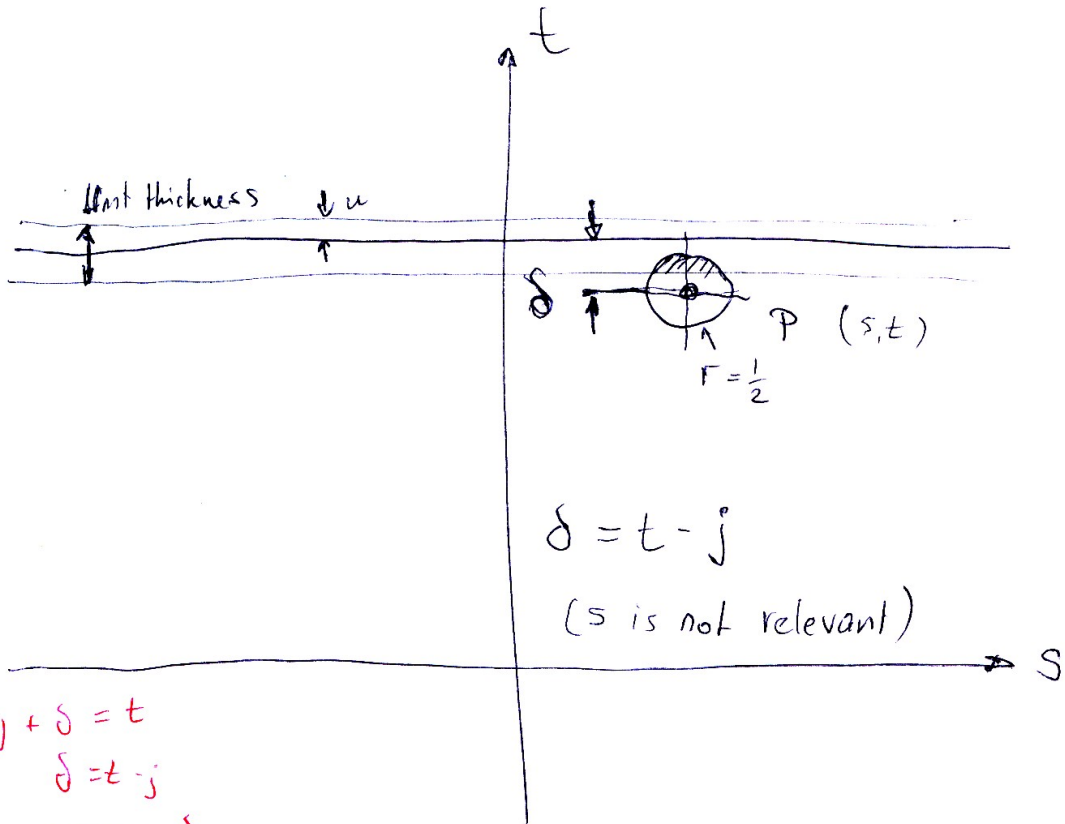 t
Unit thickness
u
δ
P (s,t)
r = 1/2
δ = t - j
(s is not relevant)
s
j + δ = t
δ = t - j